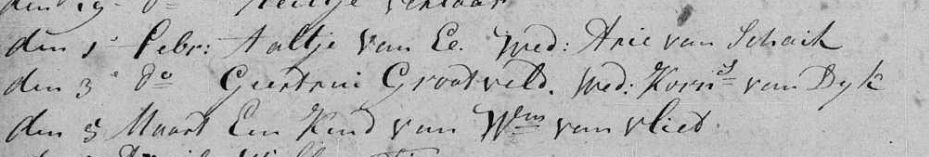 den 1e Febr: Aaltje van Ee. Wed: Arie van Schaik
den 3e do Geertrui Grootveld. Wed: Korns van Dyk
den 5 Maart Een Kind van Wm van vliet